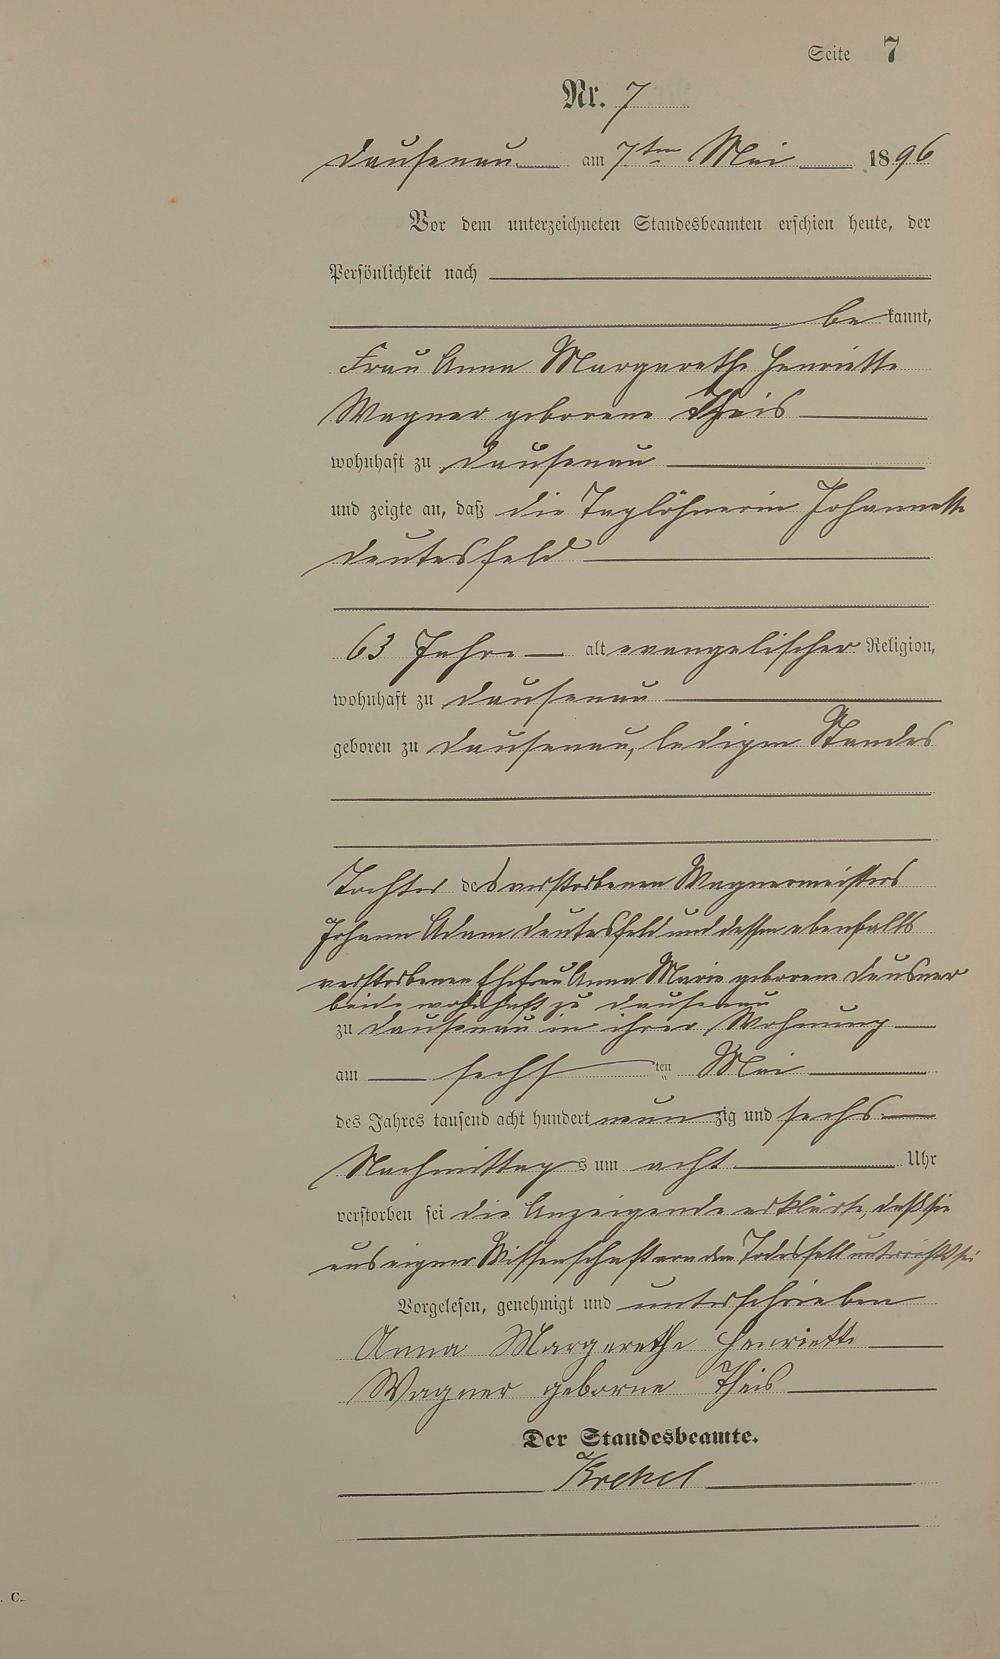 Seite 7
Nr. 7
Dausenau am 7ten Mai 1896
Vor dem unterzeichneten Standesbeamten erschien heute, der
Persönlichkeit nach
be kannt,
Frau Anna Margarethe Henriette
Wagner geborene Theis
wohnhaft zu Dausenau
und zeigte an, daß die Taglöhnerin Johannette
Deutesfeld
63 Jahre alt evangelischer Religion,
wohnhaft zu Dausenau
geboren zu Dausenau, ledigen Standes
Tochter des verstorbenen Wagnermeisters
Johann Adam Deutesfeld und dessen ebenfalls
verstorbenen Ehefrau Anna Marie geborene Deusner
beide wohnhaft zu Dausenau
zu Dausenau in ihrer Wohnung
am sechsten Mai
des Jahres tausend acht hundert neunzig und sechs
Nachmittags um acht Uhr
verstorben sei die Anzeigende erklärte, daß sie
aus eigner Wissenschaft von dem Todesfall unterrichtet sei
Vorgelesen, genehmigt und unterschrieben
Anna Margarethe Henriette
Wagner geborne Theis
Der Standesbeamte.
Krekel
. C.